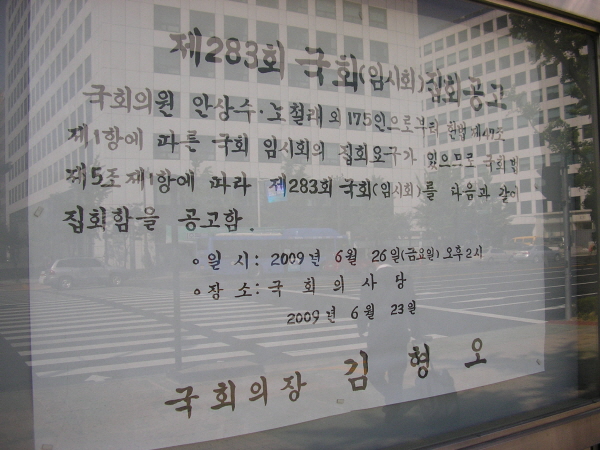 제283회 국회(임시회)집회공고
국회의원 안상수·노철래 외 175인으로부터 헌법 제47조
제1항에 따른 국회 임시회의 집회요구가 있으므로 국회법
제5조제1항에 따라 제283회 국회(임시회)를 다음과 같이
집회함을 공고함.
○ 일 시: 2009년 6월 26일(금요일) 오후2시
○ 장 소: 국 회 의 사 당
2009년 6월 23일
국회의장 김 형 오